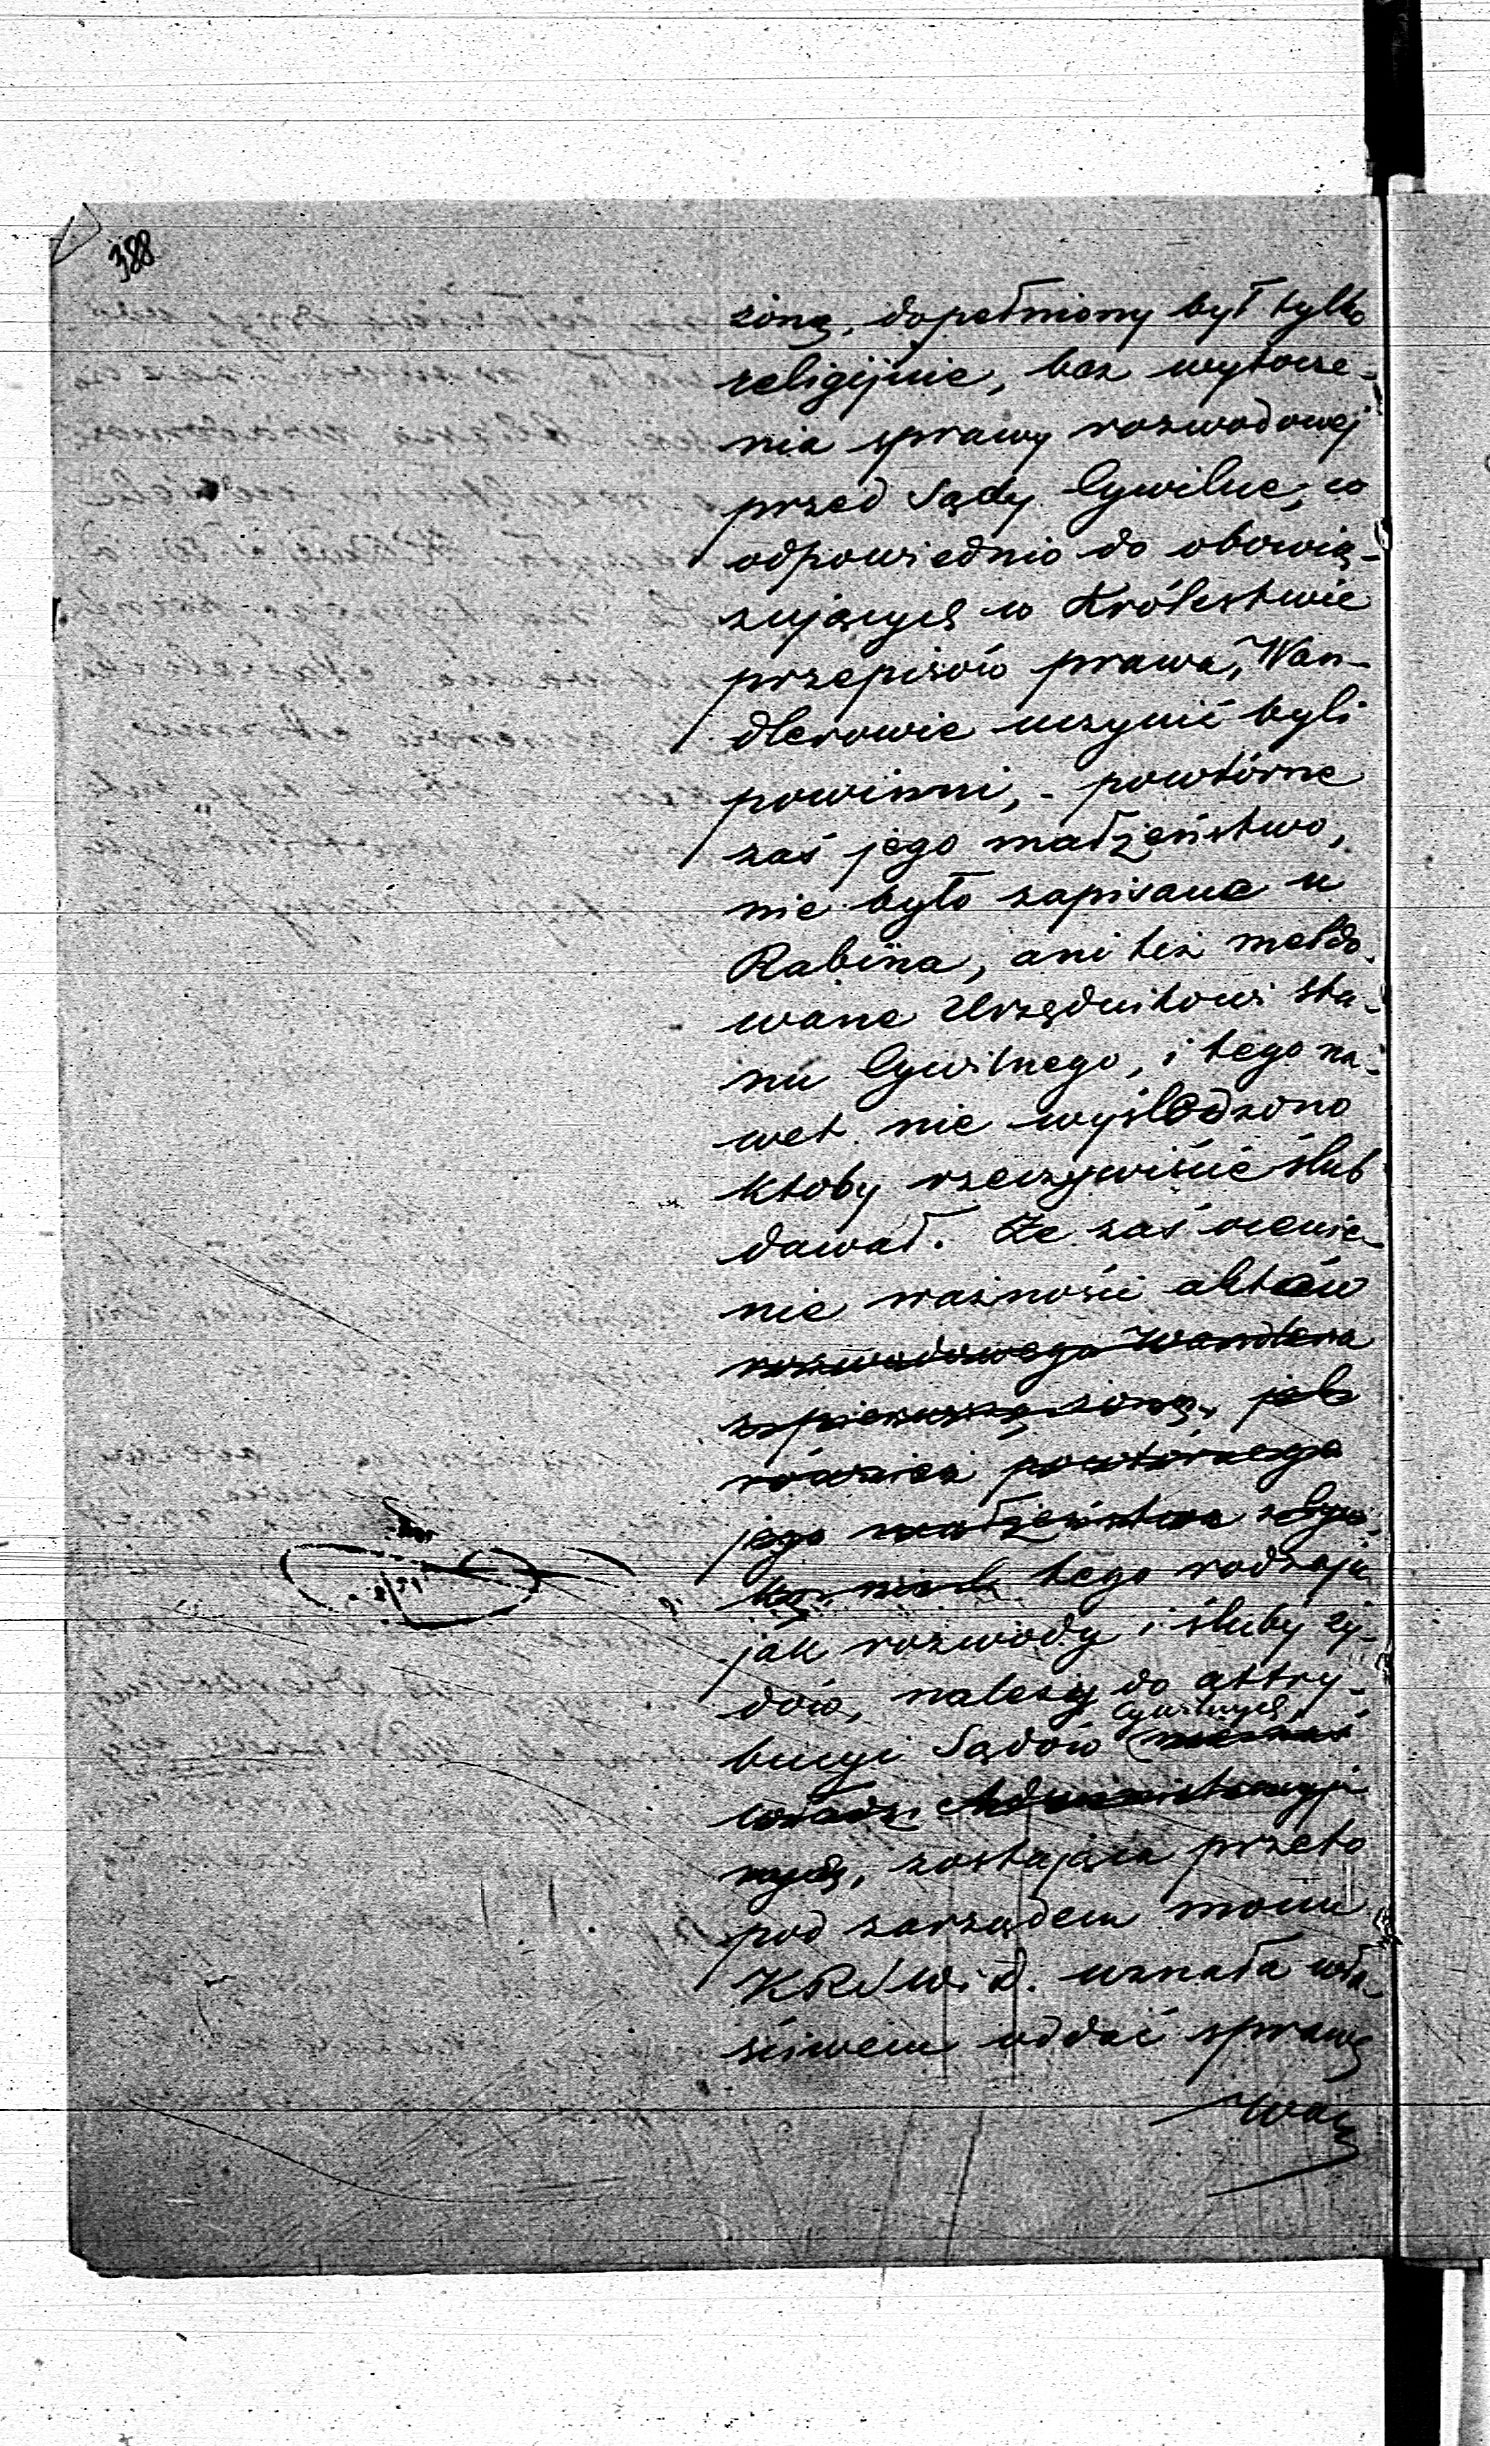 388
żoną, dopełniony był tylko
religijnie, bez wytocze-
nia sprawy rozwodowej
przed Sądy Cywilne, co
odpowiednio do obowią-
zujących w Królestwie
przepisów prawa, Wan-
dlerowie uczynić byli
powinni, - powtórne
zaś jego małżeństwo,
nie było zapisane u
Rabina, ani też meldo-
wane Urzędnikowi Sta-
nu Cywilnego, i tego na-
wet nie wyśledzono
ktoby rzeczywiście ślub
dawał. Że zaś ocenie-
nie ważności aktów
rozwodowego Wandlera
z pierwszą żoną, jak
również powtórnego
jego małżeństwa
tego rodzaju
jak rozwody i śluby ży-
dów, należy do attry-
cywilnych
bucyi Sądów
władz Administracyj
nych, zostająca przeto
pod zarządem moim
KRSWiD. uznała wła-
ściwem oddać sprawę
Wan